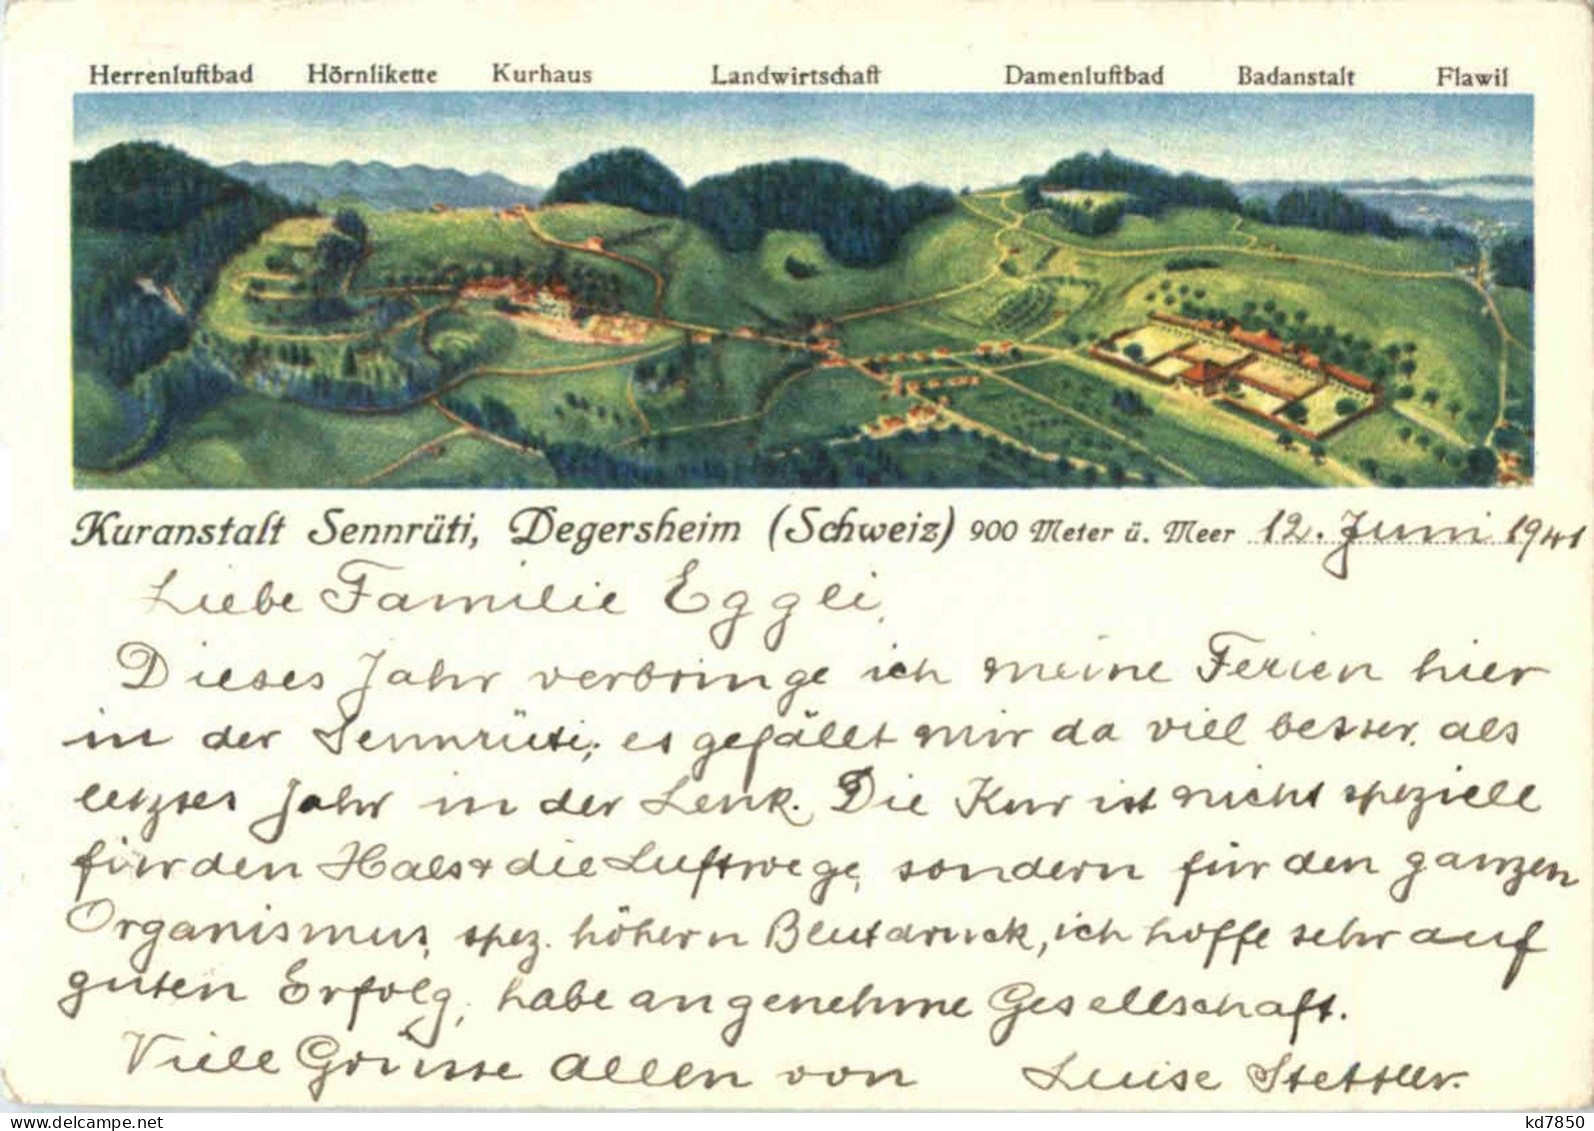 Herrenluftbad Hörnlikette Kurhaus Landwirtschaft Damenluftbad Badanstalt Flawil
Kuranstalt Sennrüti, Degersheim (Schweiz) 900 Meter ü. Meer 12. Juni 1941
Liebe Familie Eggli,
Dieses Jahr verbringe ich meine Ferien hier
in der Sennrüti; es gefällt mir da viel besser als
letztes Jahr in der Lenk. Die Kur ist nicht speziell
für den Hals + die Luftwege, sondern für den ganzen
Organismus, spez. höhern Blutdruck, ich hoffe sehr auf
guten Erfolg, habe angenehme Gesellschaft.
Viele Grüsse Allen von Luise Stettler.
delcampe.net
kd7850